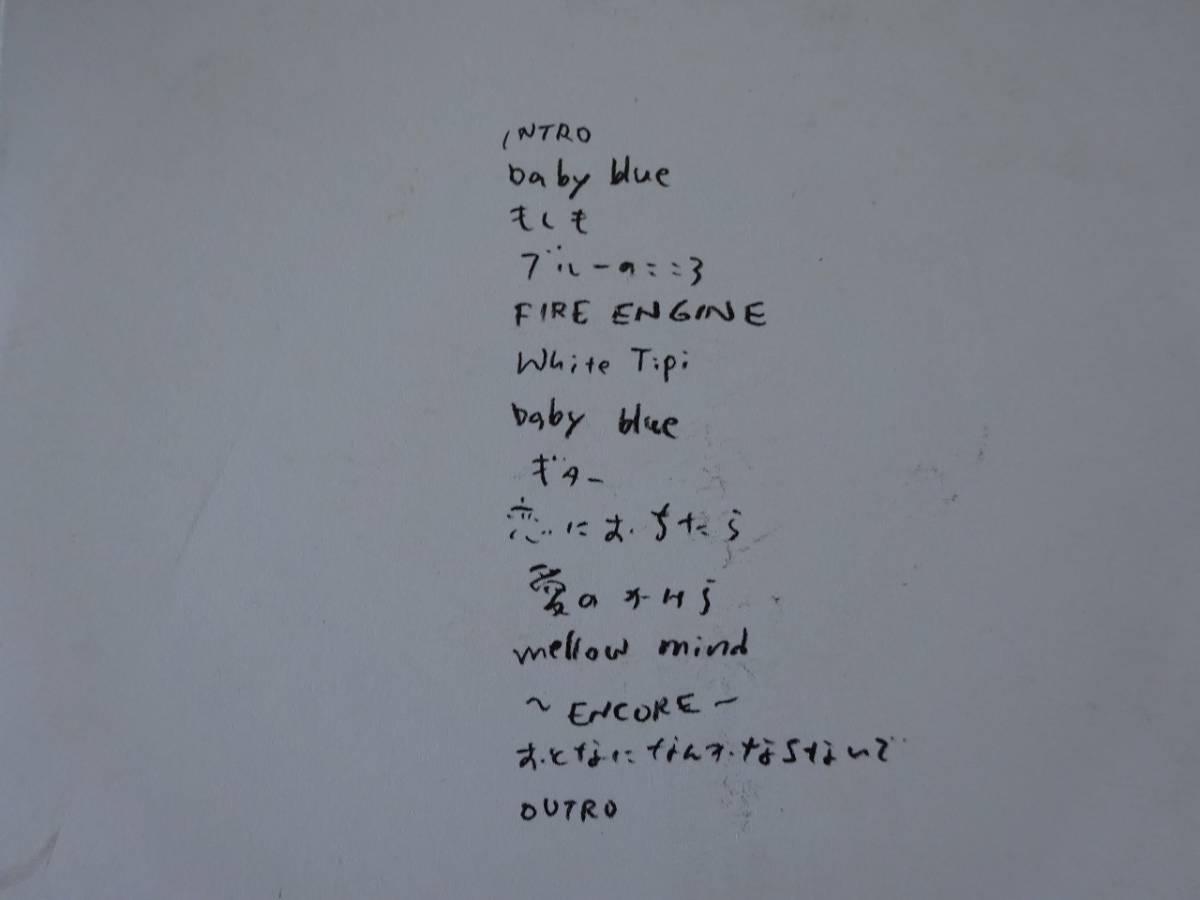 INTRO
baby blue
もしも
ブルーのこころ
FIRE ENGINE
White Tipi
baby blue
ギター
恋におちたら
愛のかけら
mellow mind
~ ENCORE ~
おとなになんかならないで
OUTRO